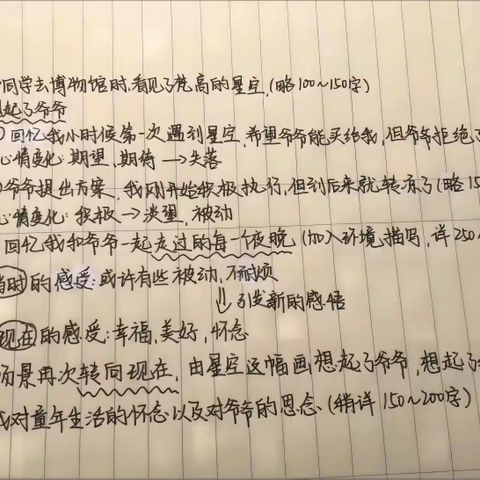 同学去博物馆时,看见了梵高的星空,(略100~150字)
起了爷爷
回忆我小时候第一次遇到星空,希望爷爷能买给我,但爷爷拒绝了
心情变化:期望,期待→失落
爷爷提出方案,我刚开始积极执行,但到后来就转变了(略15
心情变化:积极→淡漠,被动
回忆我和爷爷一起走过的每一个夜晚(加入环境描写,详250~
当时的感受:或许有些被动,不耐烦
⇓引发新的感悟
现在的感受:幸福,美好,怀念
场景再次转向现在,由星空这幅画想起了爷爷,想起了
我对童年生活的怀念以及对爷爷的思念、(稍详150~200字)